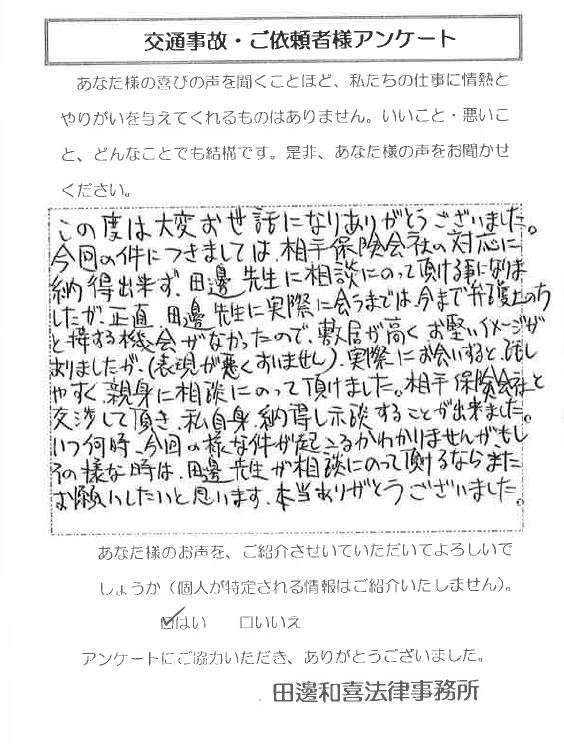 交通事故・ご依頼者様アンケート
あなた様の喜びの声を聞くことほど、私たちの仕事に情熱と
やりがいを与えてくれるものはありません。いいこと・悪いこ
と、どんなことでも結構です。是非、あなた様の声をお聞かせ
ください。
この度は大変お世話になりありがとうございました。
今回の件につきましては、相手保険会社の対応に
納得出来ず、田邊先生に相談にのって頂ける事になりま
したが、正直 田邊先生に実際に会うまでは、今まで弁護士の方
と接する機会がなかったので、敷居が高く お堅いイメージが
ありましたが、(表現が悪くすいません)、実際にお会いすると、話し
やすく、親身に相談にのって頂けました。相手保険会社と
交渉して頂き、私自身、納得し示談することが出来ました。
いつ何時、今回の様な件が起こるかわかりませんがもし
その様な時は、田邊先生が相談にのって頂けるならまた
お願いしたいと思います、本当ありがとうございました。
あなた様のお声を、ご紹介させいていただいてよろしいで
しょうか（個人が特定される情報はご紹介いたしません）。
☑はい □いいえ
アンケートにご協力いただき、ありがとうございました。
田邊和喜法律事務所